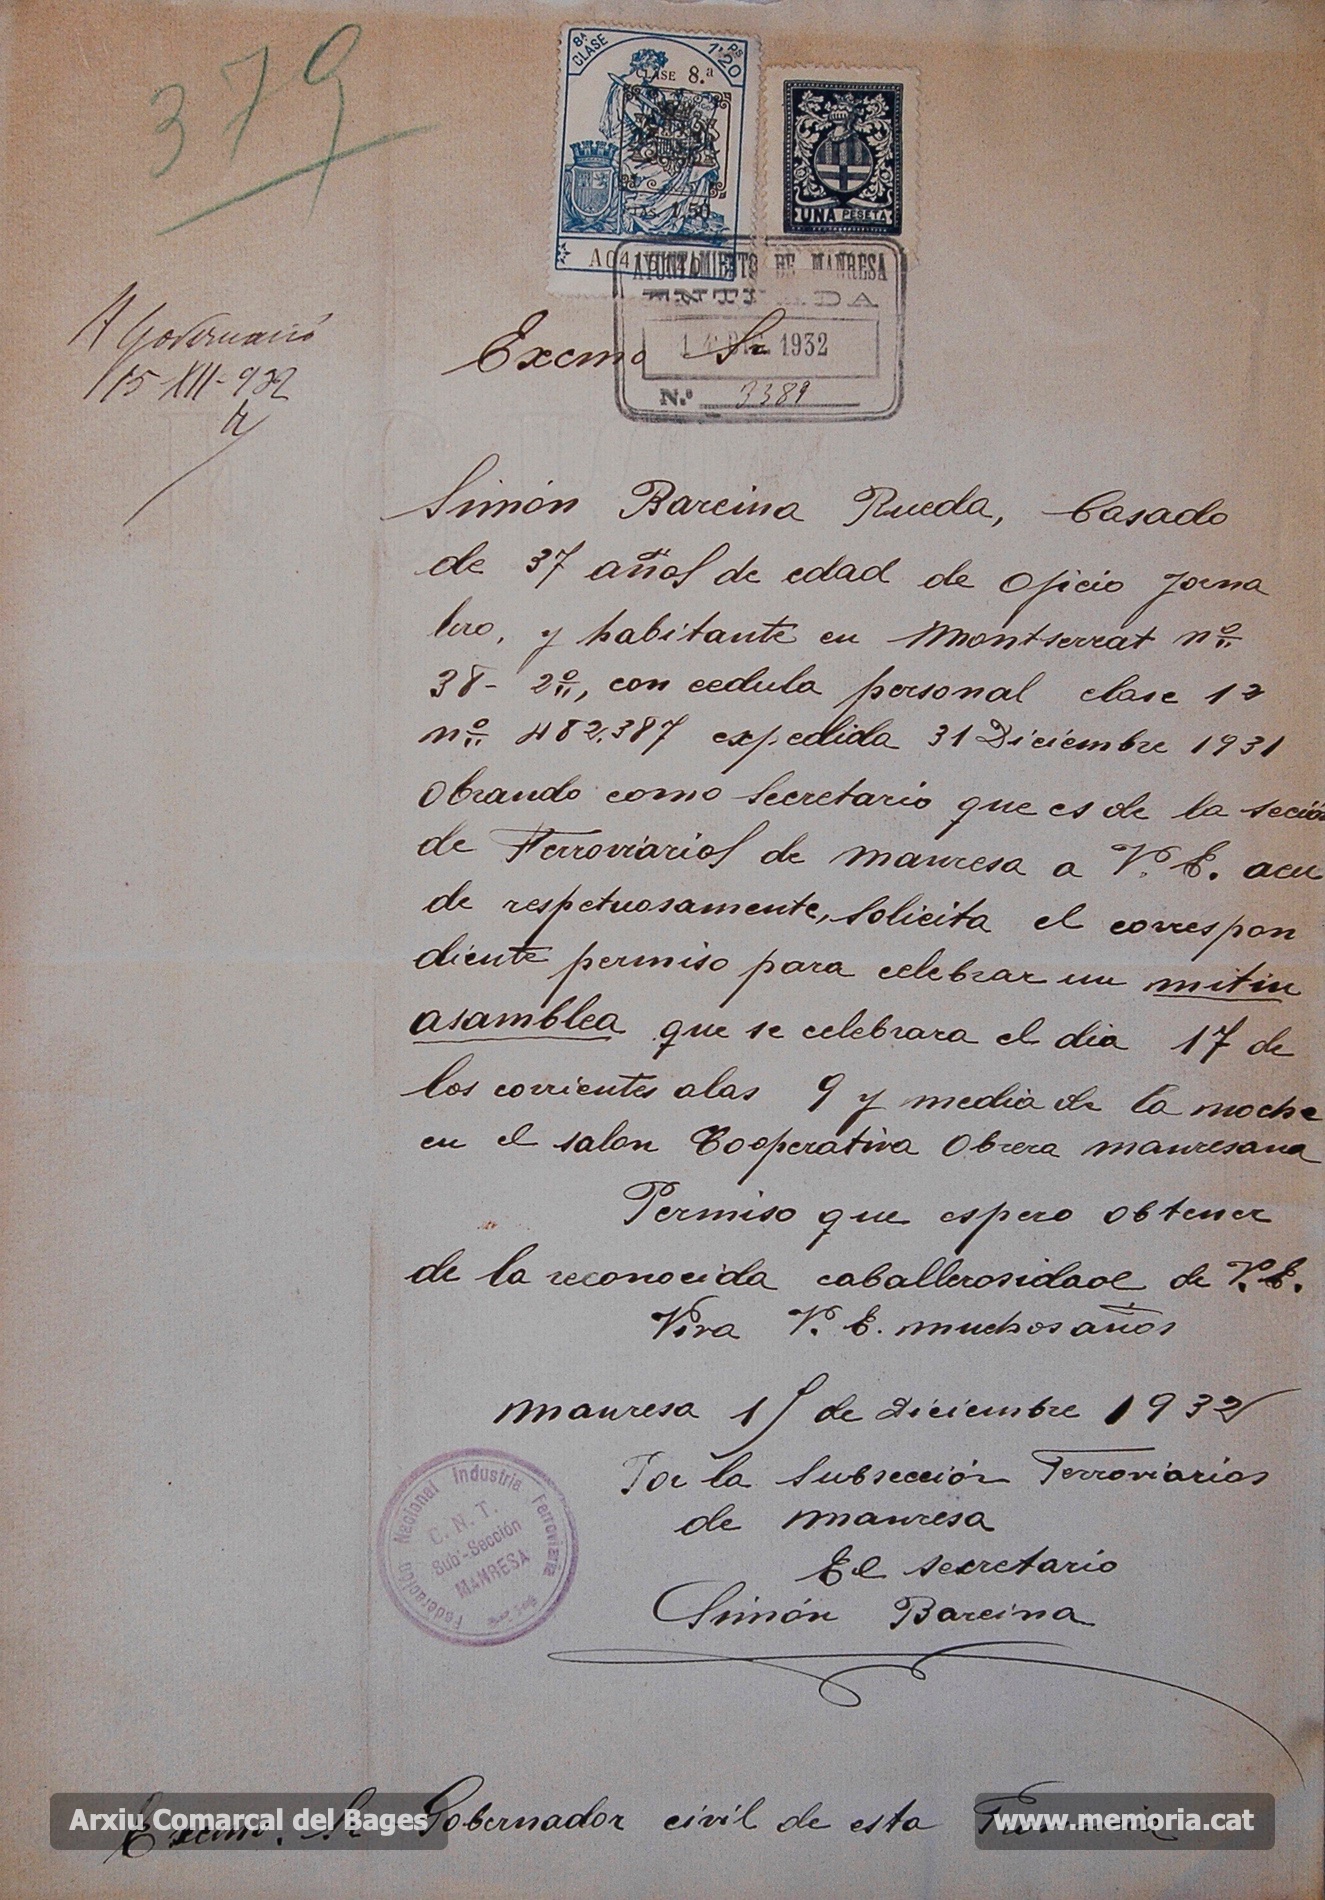 379
8ª CLASE
1'20 Ps
CLASE 8.ª
1,50
A04
UNA PESETA
AYUNTAMIENTO DE MANRESA
ENTRADA
14 DIC 1932
N.º 3389
A Governació
15-XII-932
Excmo Sr
Simón Barcina Rueda, Casado
de 37 años de edad de oficio Jorna
lero, y habitante en Montserrat nº
38- 2º, con cedula personal clase 12
nº 482.387 expedida 31 Diciembre 1931
Obrando como Secretario que es de la seción
de Ferroviarios de Manresa a V. E. acu
de respetuosamente, solicita el correspon
diente permiso para celebrar un mitin
asamblea que se celebrara el dia 17 de
los corrientes alas 9 y media de la noche
en el salon Cooperativa Obrera Manresana
Permiso que espero obtener
de la reconocida caballerosidad de V. E.
Viva V. E. muchos años
Manresa de Diciembre 1932
Por la Subsección Ferroviarios
de Manresa
El secretario
Simón Barcina
Federación Nacional Industria Ferroviaria
C. N. T.
Sub-Sección
MANRESA
Excm. Sr Gobernador civil de esta
Arxiu Comarcal del Bages
www.memoria.cat